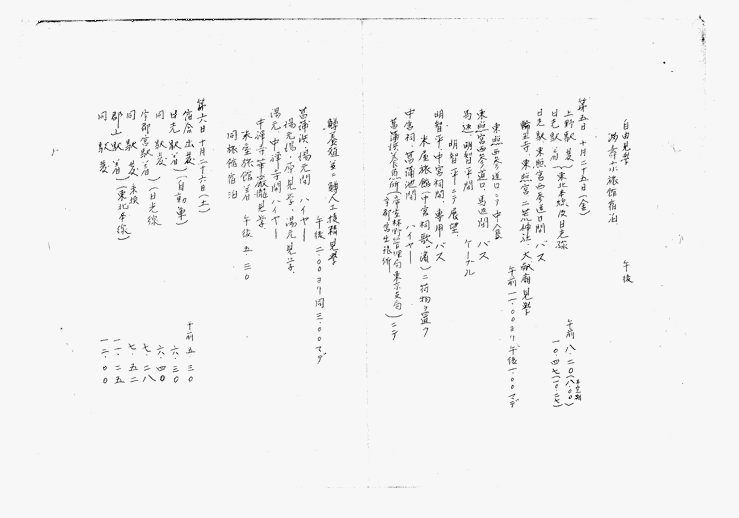 自由見学 午後
旅館宿泊
第五日 十月二十五日(金)
上野駅発 (東北本線及日光線 午前 八・二〇(八・〇〇)
日光駅着 一〇・四七(一〇・二七)
日光駅 東照宮西参道口間 バス
輪王寺、東照宮、二荒山神社、大猷廟見学
午前一一・〇〇ヨリ午後一・〇〇マデ
東照宮西参道口ニテ中食
東照宮西参道口、馬返間 バス
馬返 明智平間 ケーブル
明智平ニテ展望、
明智平、中宮祠間 専用バス
米屋旅館(中宮祠歌ヶ浜)ニ荷物ヲ置ク
中宮祠、菖蒲池間 ハイヤー
菖蒲浜養魚所(帝室林野管理局東京支局宇都宮出張所)ニテ
鱒養殖並ニ鱒人工授精見学
午後二・〇〇ヨリ同三・〇〇マデ
菖蒲浜、湯元間 ハイヤー
湯元湯ノ原見学、湯元見学、
湯元 中禅寺間 ハイヤー
中禅寺 華厳瀧見学
米屋旅館着 午後五・三〇
同旅館宿泊
第六日 十月二十六日(土)
宿舎出発 (自動車) 午前 五・三〇
日光駅着 六・三〇
同 駅発 (日光線) 六・四〇
宇都宮駅着 七・二八
同 駅発 乗換 (東北本線) 七・五二
郡山駅着 一一・二五
同 駅発 一二・〇〇